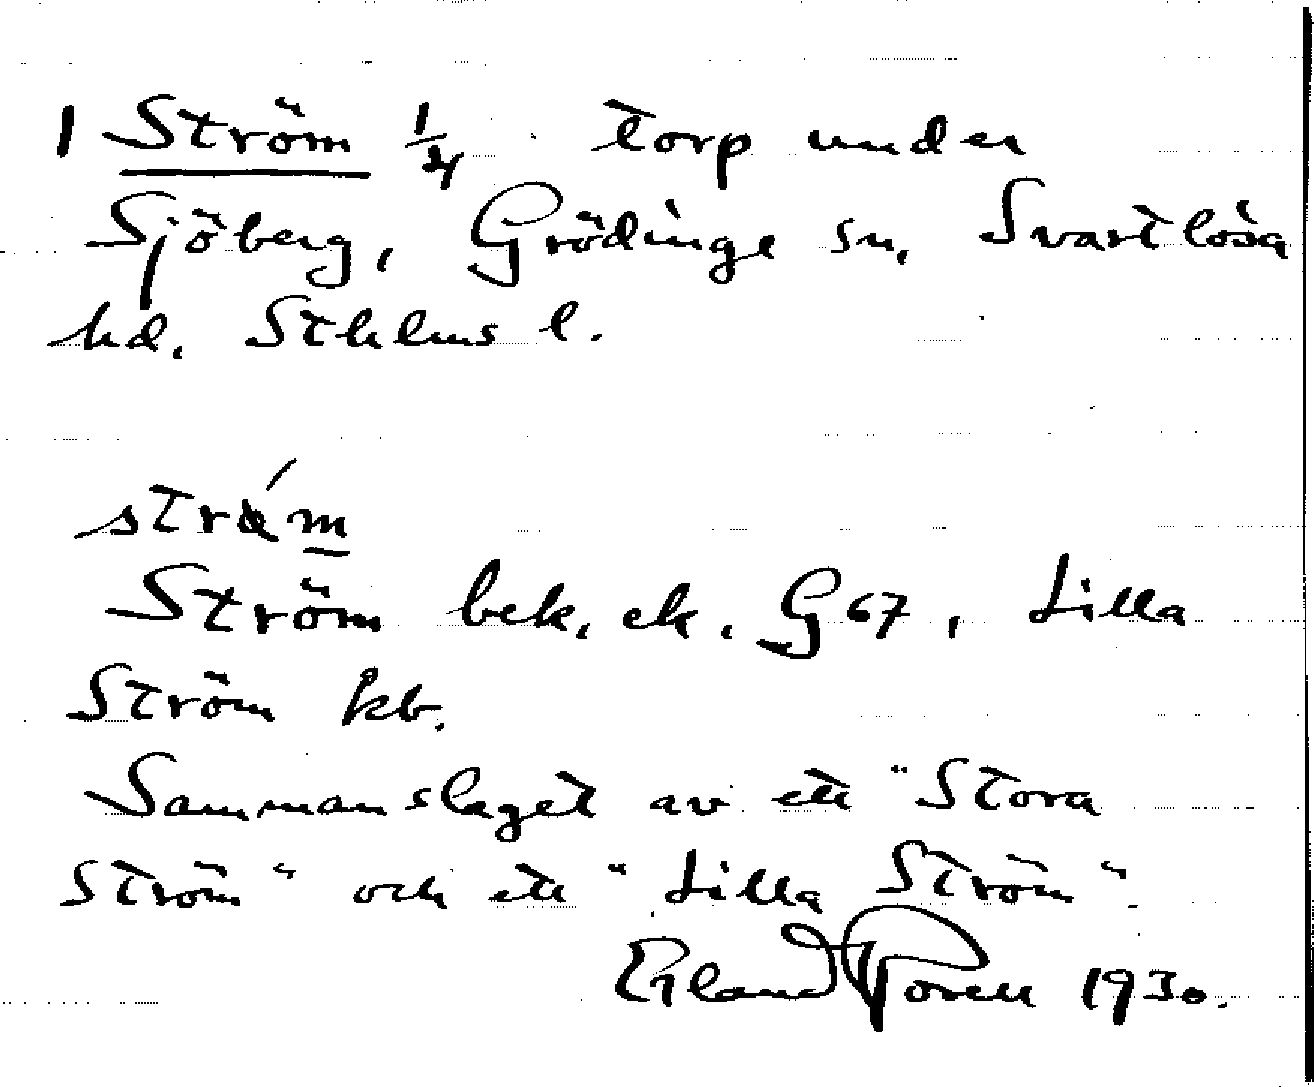 1 Ström 1/4 torp under
Sjöberg, Grödinge sn, Svartlösa
hd. Sthlms l.
Ström bek. ek. G 67, Lilla
Ström kb.
Sammanslaget av ett "Stora
Ström" och ett "Lilla Ström".
Erland 1930.